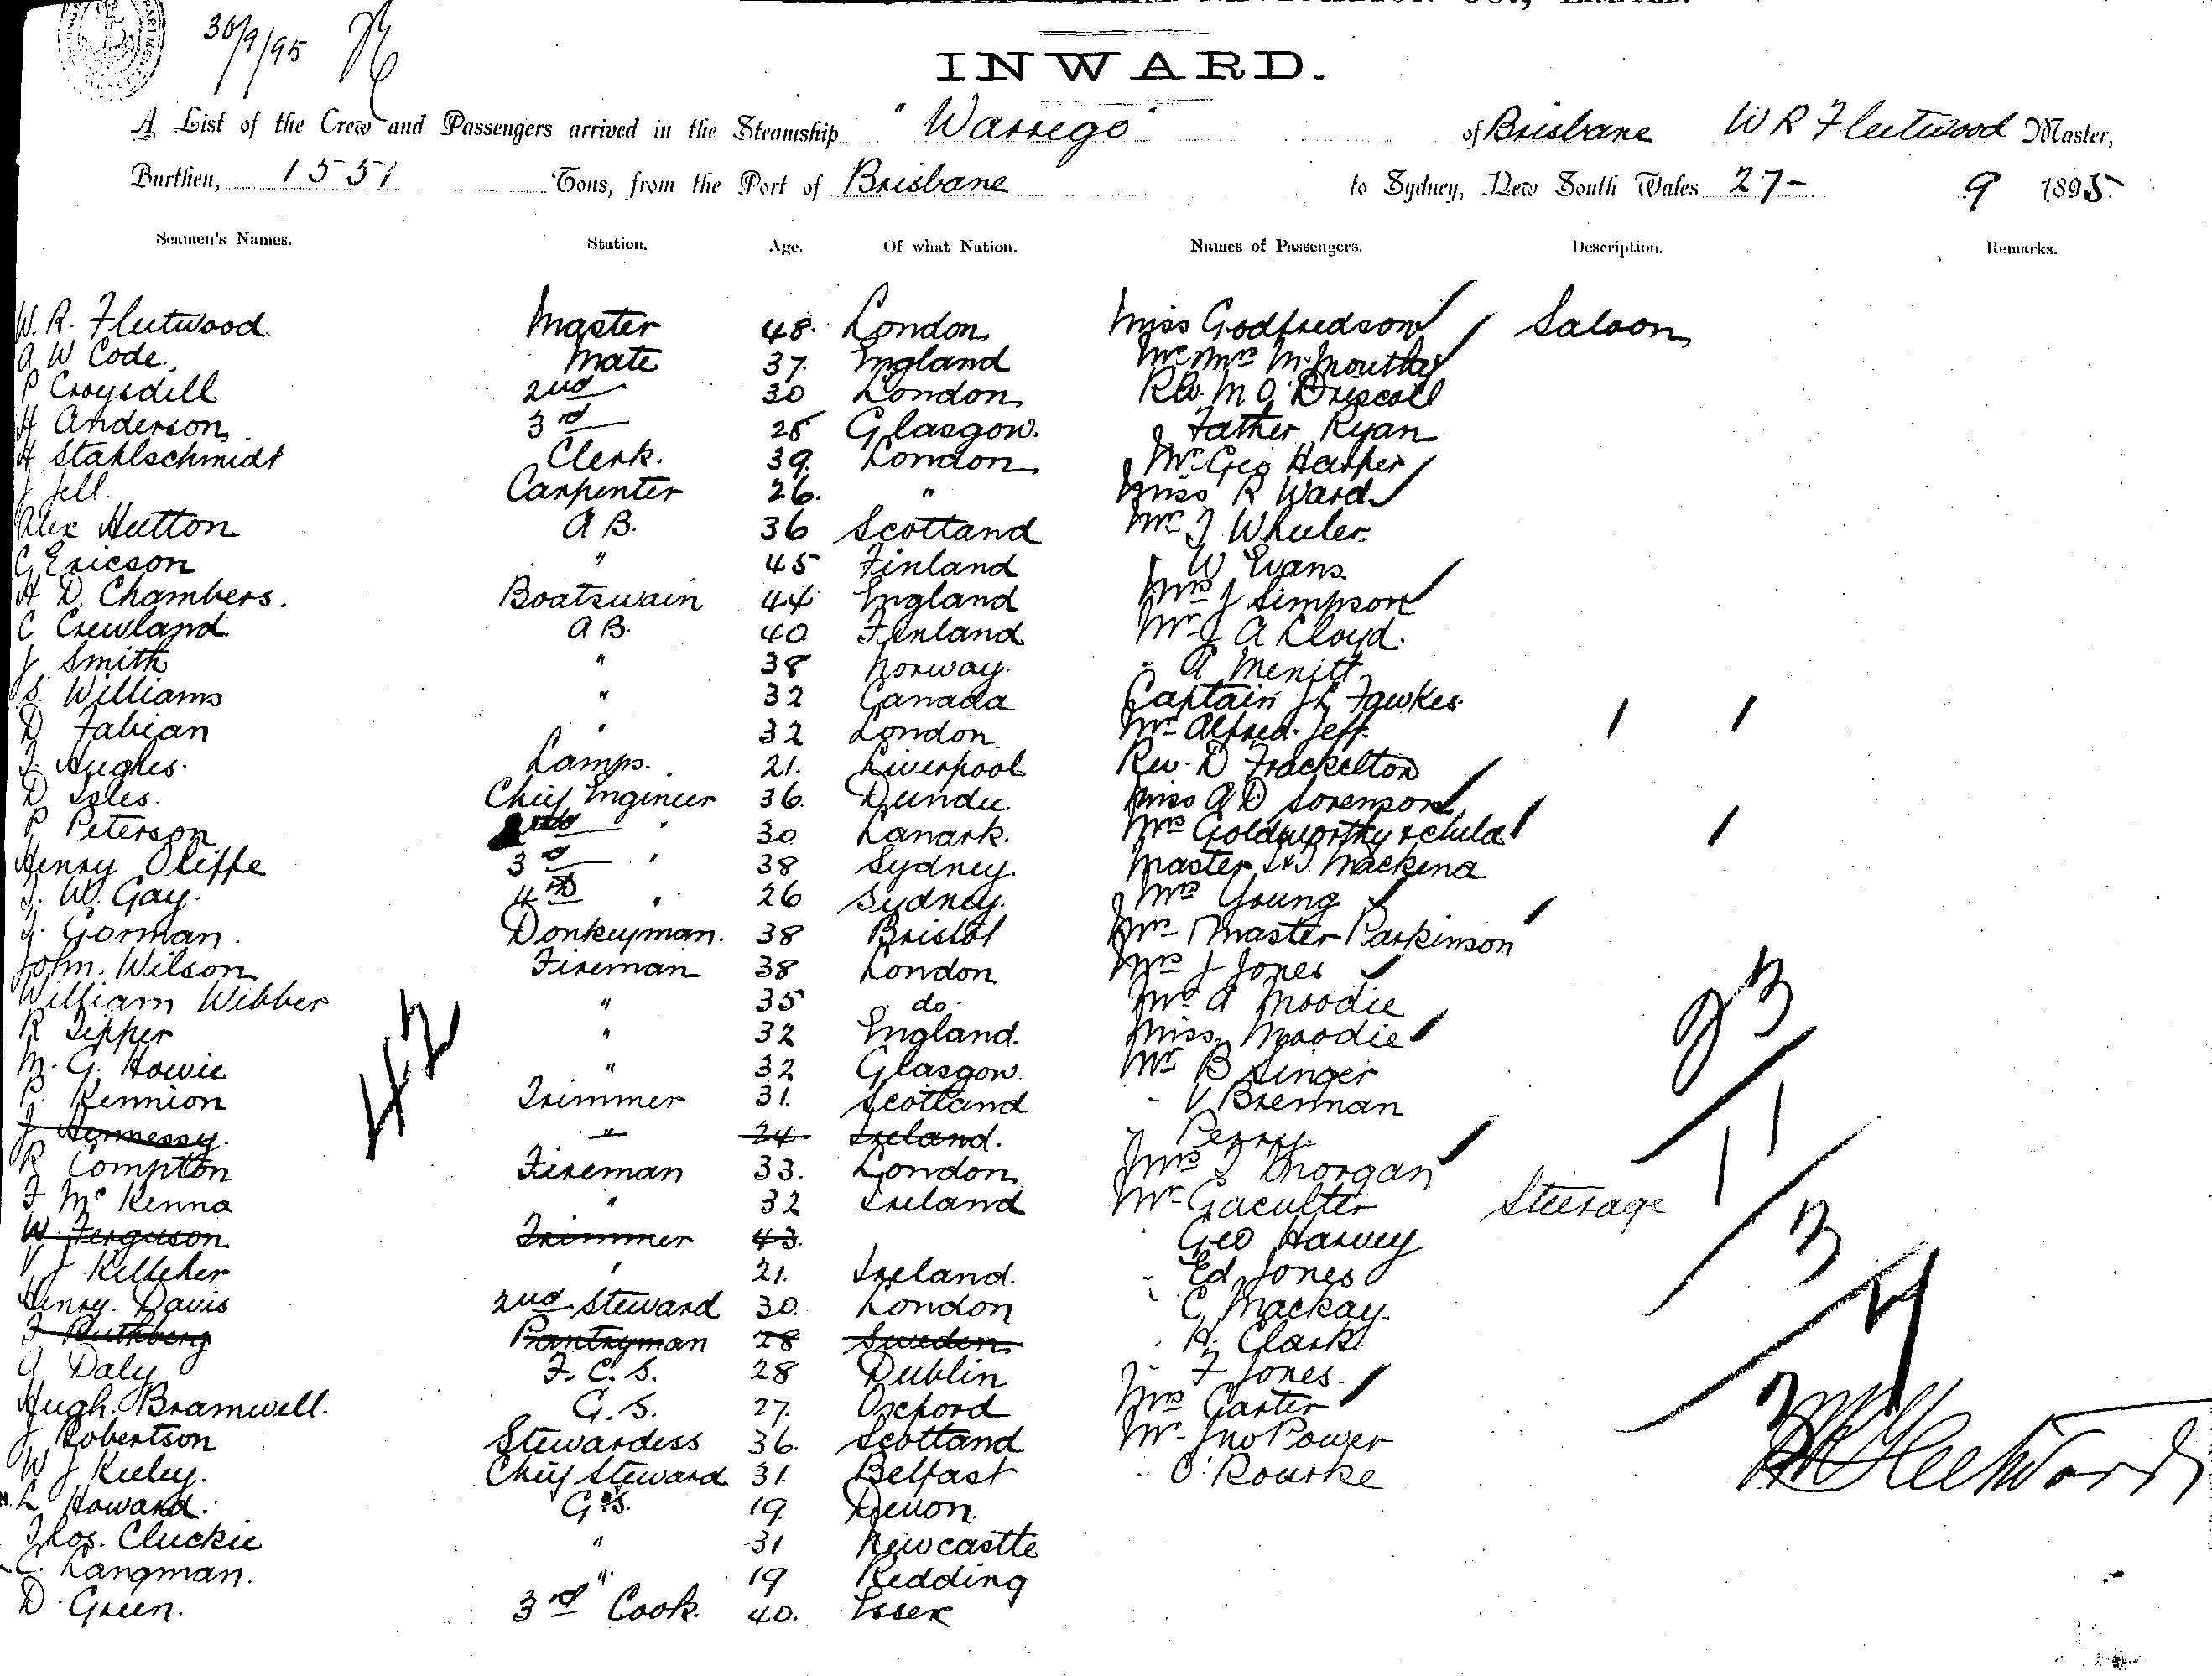 30/9/95
INWARD.
A List of the Crew and Passengers arrived in the Steamship "Warrego" of Brisbane W R Fleetwood Master,
Burthen, 1551 Tons, from the Port of Brisbane to Sydney, New South Wales 27- 9 1895.
Seamen's Names. Station. Age. Of what Nation. Names of Passengers. Description. Remarks.
W. R. Fleetwood Master 48. London Miss Godfredson Saloon
A W Code. Mate 37. England Mr Mrs
P Croysdill 2nd 30 London Rev. M O'Driscoll
H Anderson 3rd 25 Glasgow. Father Ryan
H Stahlschmidt Clerk. 39. London Mr Geo Harper
J Jell. Carpenter 26. " Miss R Ward
Alex Hutton A B. 36 Scotland Mr J Wheeler.
C Ericson " 45 Finland " W Evans.
H D Chambers. Boatswain 44 England Mrs J Simpson
C Crewland A B. 40 Finland Mr J A Lloyd.
J Smith " 38 Norway. " A Merritt
S. Williams " 32 Canada Captain J L Fawkes.
D Fabian " 32 London. Mr Alfred Jeff.
J. Hughes. Lamps. 21. Liverpool Rev. D Frackelton
D Isles. Chief Engineer 36. Dundee. Miss A D Sorenson
P Peterson 2nd " 30 Lanark. Mrs Goldsworthy & child
Henry Oliffe 3rd " 38 Sydney. Master Mackena
J. W. Gay. 4th " 26 Sydney. Mrs Young
J. Gorman. Donkeyman. 38 Bristol Mrs Master Parkinson
John. Wilson Fireman 38 London Mrs J Jones
William Webber " 35 do. Mr A Moodie
R Lipper " 32 England. Miss Moodie
M. G. Howie " 32 Glasgow. Mr B Singer
P. Kennion Trimmer 31. Scotland - V Brennan
J Hennessy. " 24 Ireland. - Perry.
R Compton Fireman 33. London Mrs J Morgan
F McKenna " 32 Ireland Mr Gaculter Steerage
W. Ferguson Trimmer 43. Geo Harvey
V J Kelleher " 21. Ireland. - Ed Jones
Henry. Davis 2nd Steward 30. London " C Mackay.
F Ruthberg Pantryman 28 Sweden. " H. Clark
A Daly F. C. S. 28 Dublin " F Jones.
Hugh. Bramwell. G. S. 27. Oxford Mrs Carter
J Robertson Stewardess 36. Scotland Mr Jno Power
W J Kieley. Chief Steward 31. Belfast - O'Rourke
H. L Howard. G. S. 19. Devon.
Thos. Cluckie " 31 Newcastle
C. Langman. " 19 Redding
D. Green. 3rd Cook. 40. Essex
42
23
11
3
4
WR Fleetwood